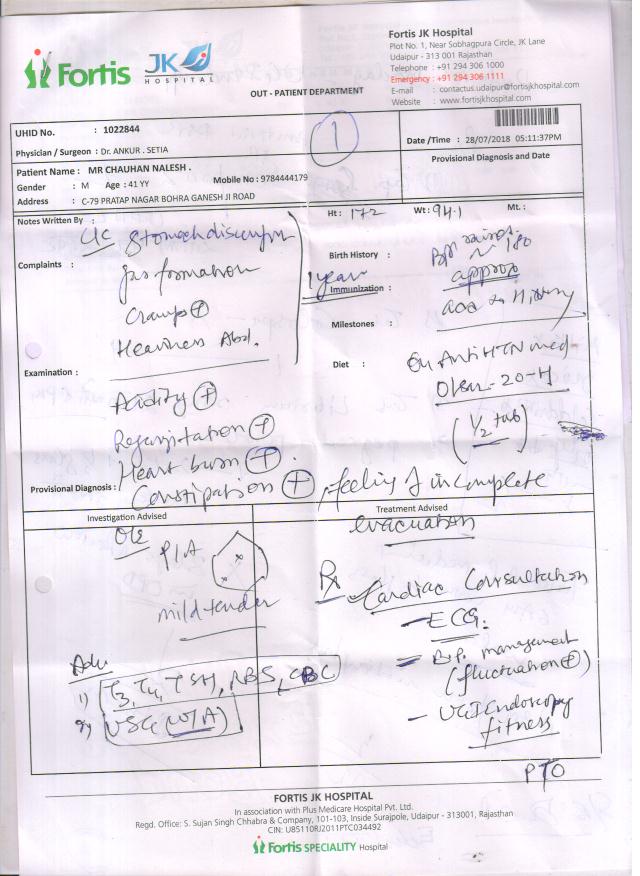 Fortis
JK
HOSPITAL
Fortis JK Hospital
Plot No. 1, Near Sobhagpura Circle, JK Lane
Udaipur - 313 001 Rajasthan
Telephone : +91 294 306 1000
Emergency : +91 294 306 1111
E-mail : contactus.udaipur@fortisjkhospital.com
Website : www.fortisjkhospital.com
OUT - PATIENT DEPARTMENT
UHID No. : 1022844
1
Date /Time : 28/07/2018 05:11:37PM
Physician / Surgeon : Dr. ANKUR . SETIA
Provisional Diagnosis and Date
Patient Name : MR CHAUHAN NALESH .
Gender : M Age : 41 YY Mobile No : 9784444179
Address : C-79 PRATAP NAGAR BOHRA GANESH JI ROAD
Notes Written By :
Ht : 172 Wt : 94.1 Mt. :
C/C Stomach discomfort
Complaints :
gas formation
Cramps +
Heaviness Abd.
1 year
Birth History :
BP raises
~ 180
approx
Immunization :
History
Milestones :
Diet : On Anti HTN med
Olsar-20-H
(1/2 tab)
Examination :
Acidity +
Regurgitation +
Heart burn +
Provisional Diagnosis :
Constipation +, feeling of incomplete
evacuation
Investigation Advised
Treatment Advised
O/E
P/A
mild tender
Rx
Cardiac Consultation
- ECG.
- B.P. management
(fluctuation +)
- UGI Endoscopy
fitness
Adv
1) T3, T4, TSH, RBS, CBC
2) USG (W/A)
PTO
FORTIS JK HOSPITAL
In association with Plus Medicare Hospital Pvt. Ltd.
Regd. Office: S. Sujan Singh Chhabra & Company, 101-103, Inside Surajpole, Udaipur - 313001, Rajasthan
CIN: U85110RJ2011PTC034492
Fortis SPECIALITY Hospital